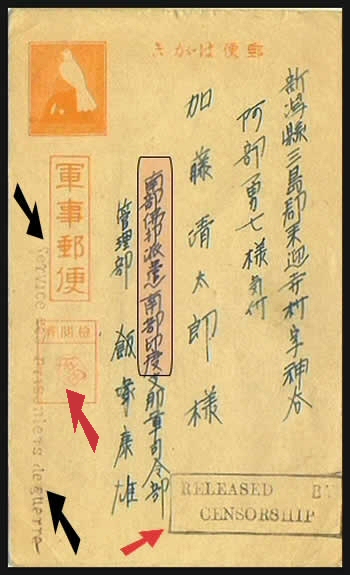 郵便はがき
新潟縣三島郡来迎寺村字神谷
阿部勇七様気付
加藤清太郎様
南部佛印派遣南部印度支那軍司令部
管理部 飯塚康雄
軍事郵便
検閲済
Service des Prisonniers de guerre
RELEASED BY
CENSORSHIP